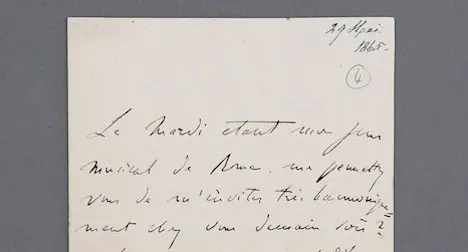 29 Mai
1865.
4
Le Mardi etant jour
musical de Rome, me permettez
vous de m'inviter très harmonique-
ment chez vous demain soir?